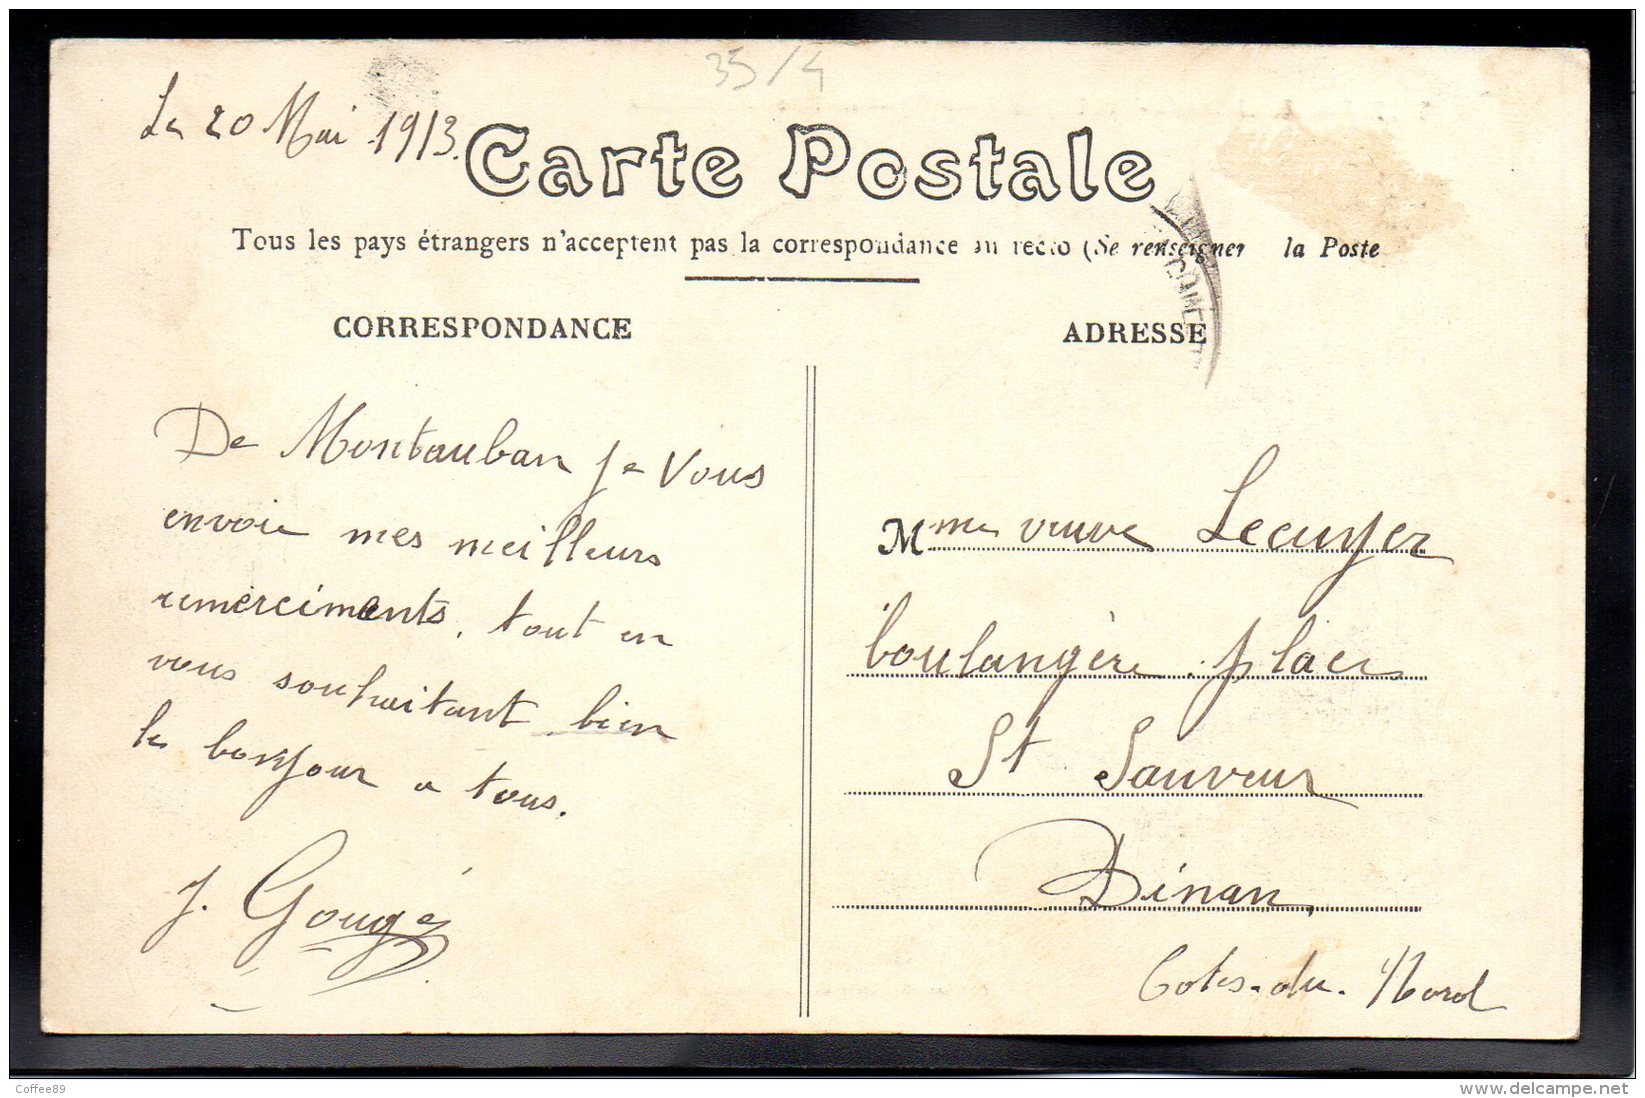 35/4
Le 20 Mai 1913.
Carte Postale
Tous les pays étrangers n'acceptent pas la correspondance au recto (Se renseigner la Poste
CORRESPONDANCE
De Montauban je vous
envoie mes meilleurs
remerciments, tout en
vous souhaitant bien
le bonjour a tous.
J. Gougé
ADRESSE
Mme veuve Lecuyer
boulangère place
St Sauveur
Dinan,
Cotes-du-Nord
Coffee89
www.delcampe.net